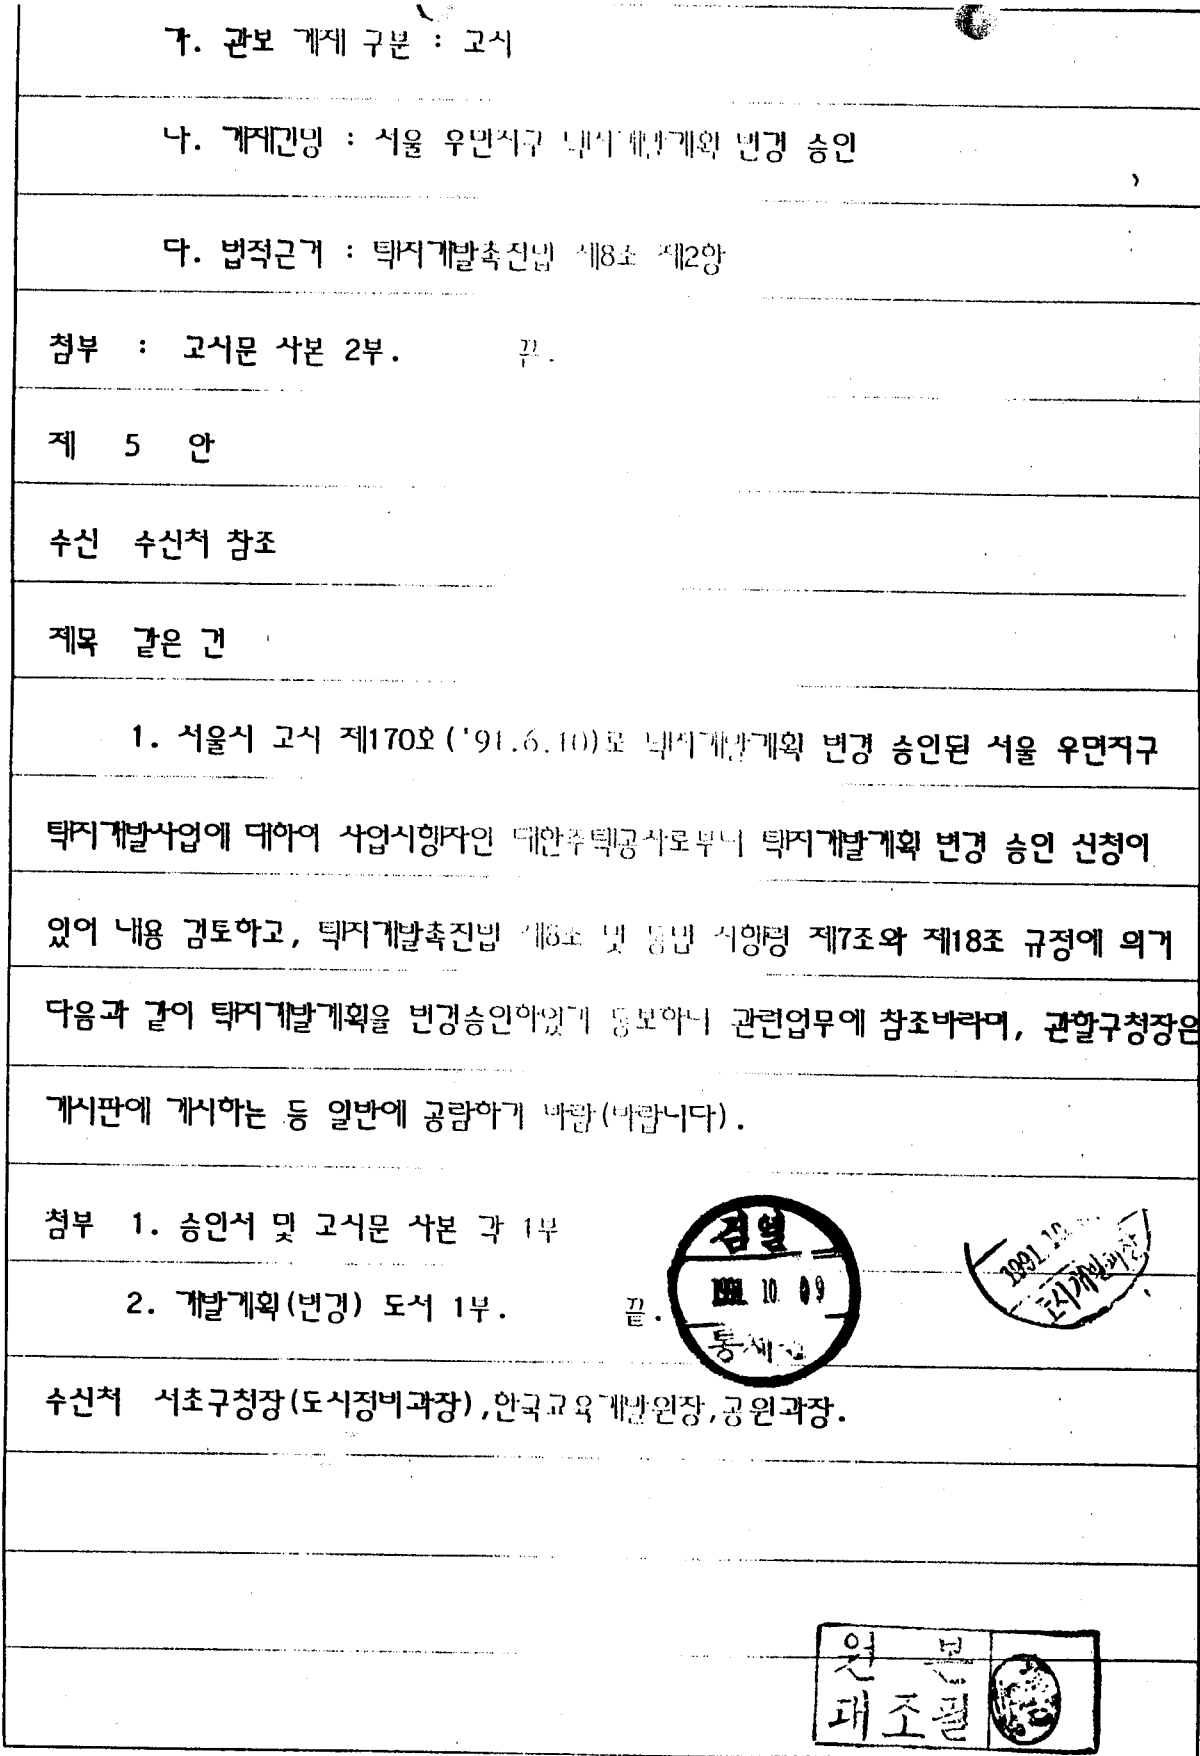 가. 관보 게재 구분 : 고시
나. 게재건명 : 서울 우면지구 택지개발계획 변경 승인
다. 법적근거 : 택지개발촉진법 제8조 제2항
첨부 : 고시문 사본 2부. 끝.
제 5 안
수신 수신처 참조
제목 같은 건
1. 서울시 고시 제170호('91.6.10)로 택지개발계획 변경 승인된 서울 우면지구
택지개발사업에 대하여 사업시행자인 대한주택공사로부터 택지개발계획 변경 승인 신청이
있어 내용 검토하고, 택지개발촉진법 제8조 및 동법 시행령 제7조와 제18조 규정에 의거
다음과 같이 택지개발계획을 변경승인하였기 통보하니 관련업무에 참조바라며, 관할구청장은
게시판에 게시하는 등 일반에 공람하기 바람(바랍니다).
첨부 1. 승인서 및 고시문 사본 각 1부
2. 개발계획(변경) 도서 1부. 끝.
검열
1991. 10. 09
통제
1991.10
도시개발과장
수신처 서초구청장(도시정비과장),한국교육개발원장,공원과장.
원본
대조필